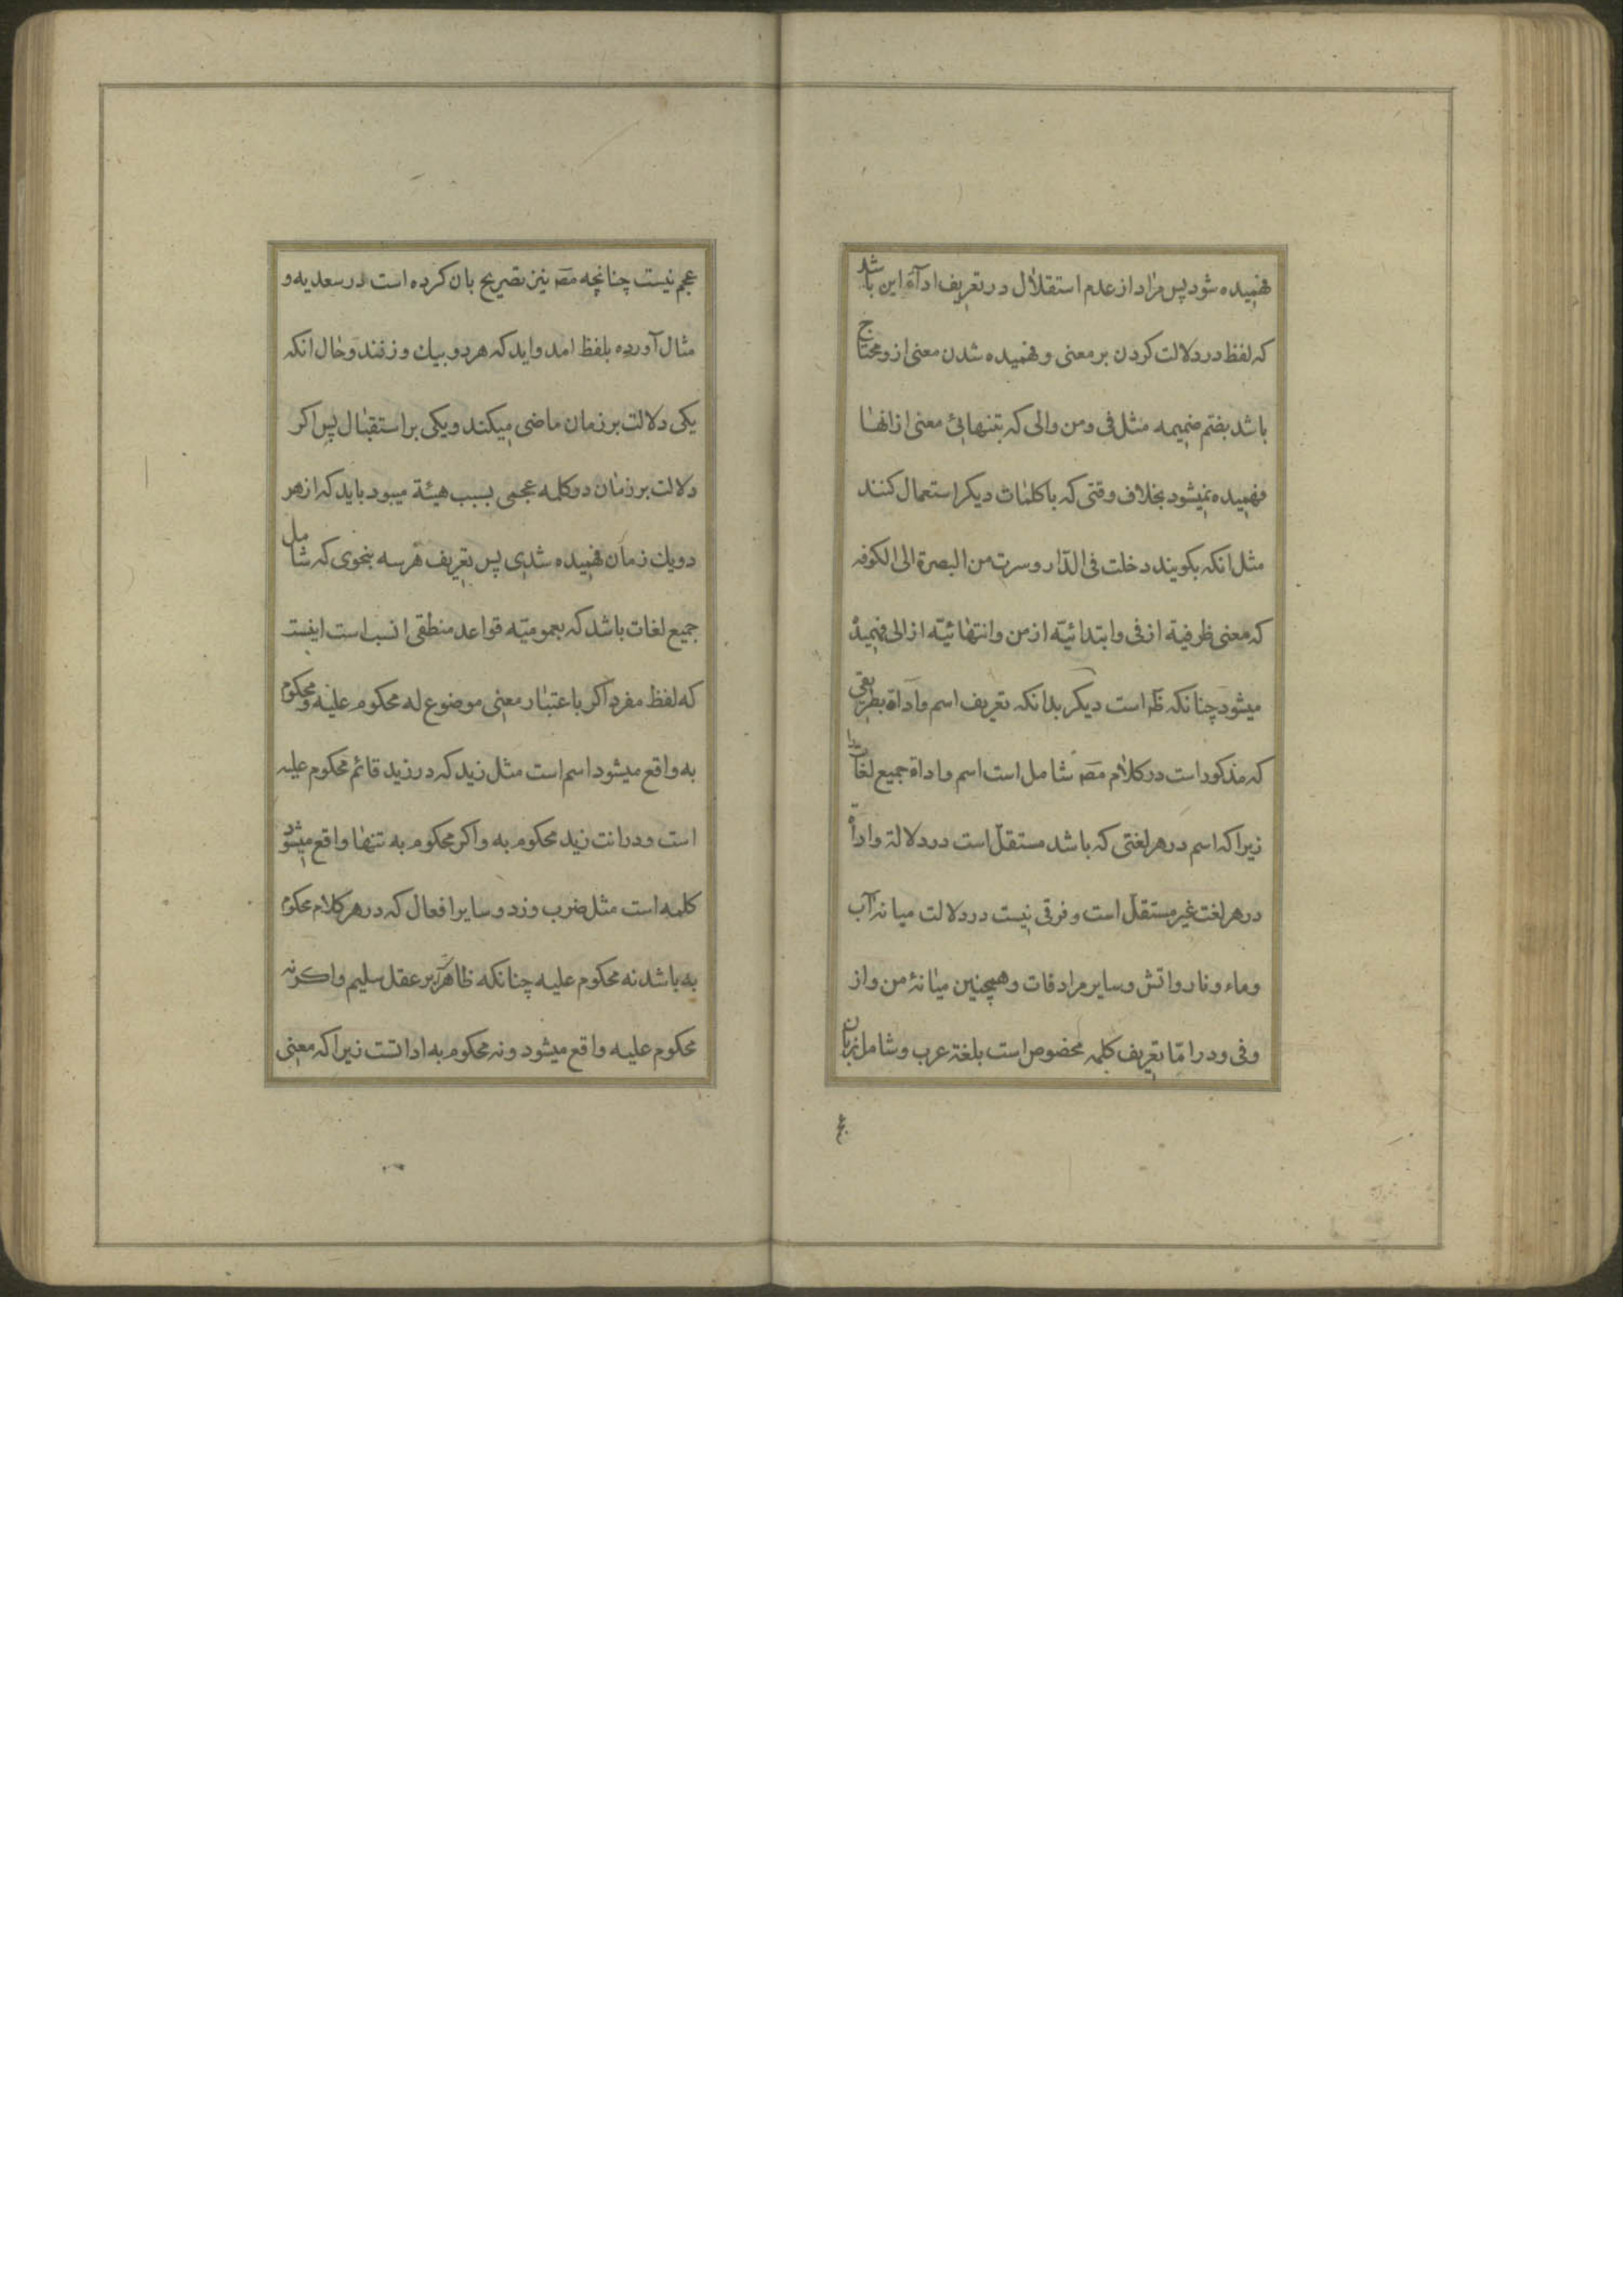 فهمیده شود پس مراد از عدم استقلال در تعریف اداة این باشد
که لفظ در دلالت کردن بر معنی و فهمیده شدن معنی ازو محتاج
باشد بضم ضمیمه مثل فی و من والی که بتنهائی معنی ازانها
فهمیده نمیشود بخلاف وقتی که با کلمات دیکر استعمال کنند
مثل انکه بکویند دخلت فی الدار و سرت من البصرة الی الکوفه
که معنی ظرفیة از فی و ابتدائیّه از من و انتهائیّه از الی فهمیده
میشود چنانکه ظَ است دیکر بدانکه تعریف اسم و اداة بطریقی
که مذکور است در کلام مصَ شامل است اسم و اداة جمیع لغات را
زیرا که اسم در هر لغتی که باشد مستقلّ است در دلالة و اداة
در هر لغت غیر مستقلّ است و فرقی نیست در دلالت میانه آب
و ماء و نار و اتش و سایر مرادفات و همچنین میانهٔ من و از
و فی و در امّا تعریف کلمه مخصوص است بلغة عرب و شامل زبان
عجم
عجم نیست چنانچه مصَ نیز تصریح بان کرده است در سعدیه و
مثال آورده بلفظ امد و اید که هر دو بیك وزنند و حال انکه
یکی دلالت بر زمان ماضی میکند و یکی بر استقبال پس اکر
دلالت بر زمان در کلمه عجمی بسبب هیئة میبود باید که از هر
دو یك زمان فهمیده شدی پس تعریف هر سه بنحوی که شامل
جمیع لغات باشد که بعمومیّه قواعد منطقی انسب است اینست
که لفظ مفرد اکر باعتبار معنی موضوع له محکوم علیه و محکوم
به واقع میشود اسم است مثل زید که در زید قائم محکوم علیه
است و در انت زید محکوم به و اکر محکوم به تنها واقع میشود
کلمه است مثل ضرب و زد و سایر افعال که در هر کلام محکوم
به باشد نه محکوم علیه چنانکه ظاهر است بر عقل سلیم و اکر نه
محکوم علیه واقع میشود و نه محکوم به اداتست زیرا که معنی